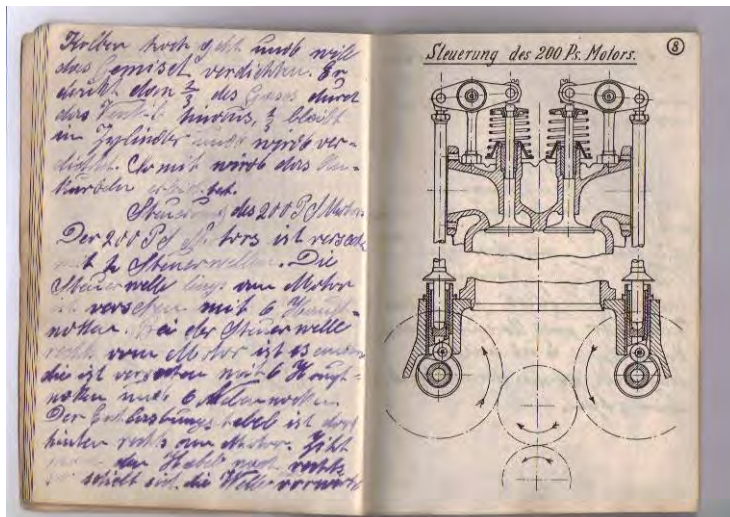 Kolben hoch geht und will
das Gemisch verdichten. Er
drückt dan 2/3 des Gases durch
das Ventil hinaus, 1/3 bleibt
im Zylinder und wird ver-
dichtet. Somit wird das An-
kurbeln erleichtert.
Steuerung des 200 PS Motors.
Der 200 PS Motors ist versehen
mit 2 Steuerwellen. Die
Steuerwelle links vom Motor
ist versehen mit 6 Haupt-
nocken. Bei der Steuerwelle
rechts vom Motor ist es anders
die ist versehen mit 6 Haupt-
nocken und 6 Nebennocken.
Der Entlastungshebel ist dort
hinten rechts am Motor. Zieht
man den Hebel nach rechts
so schiebt sich die Welle vorwärts
Steuerung des 200 Ps. Motors.
8